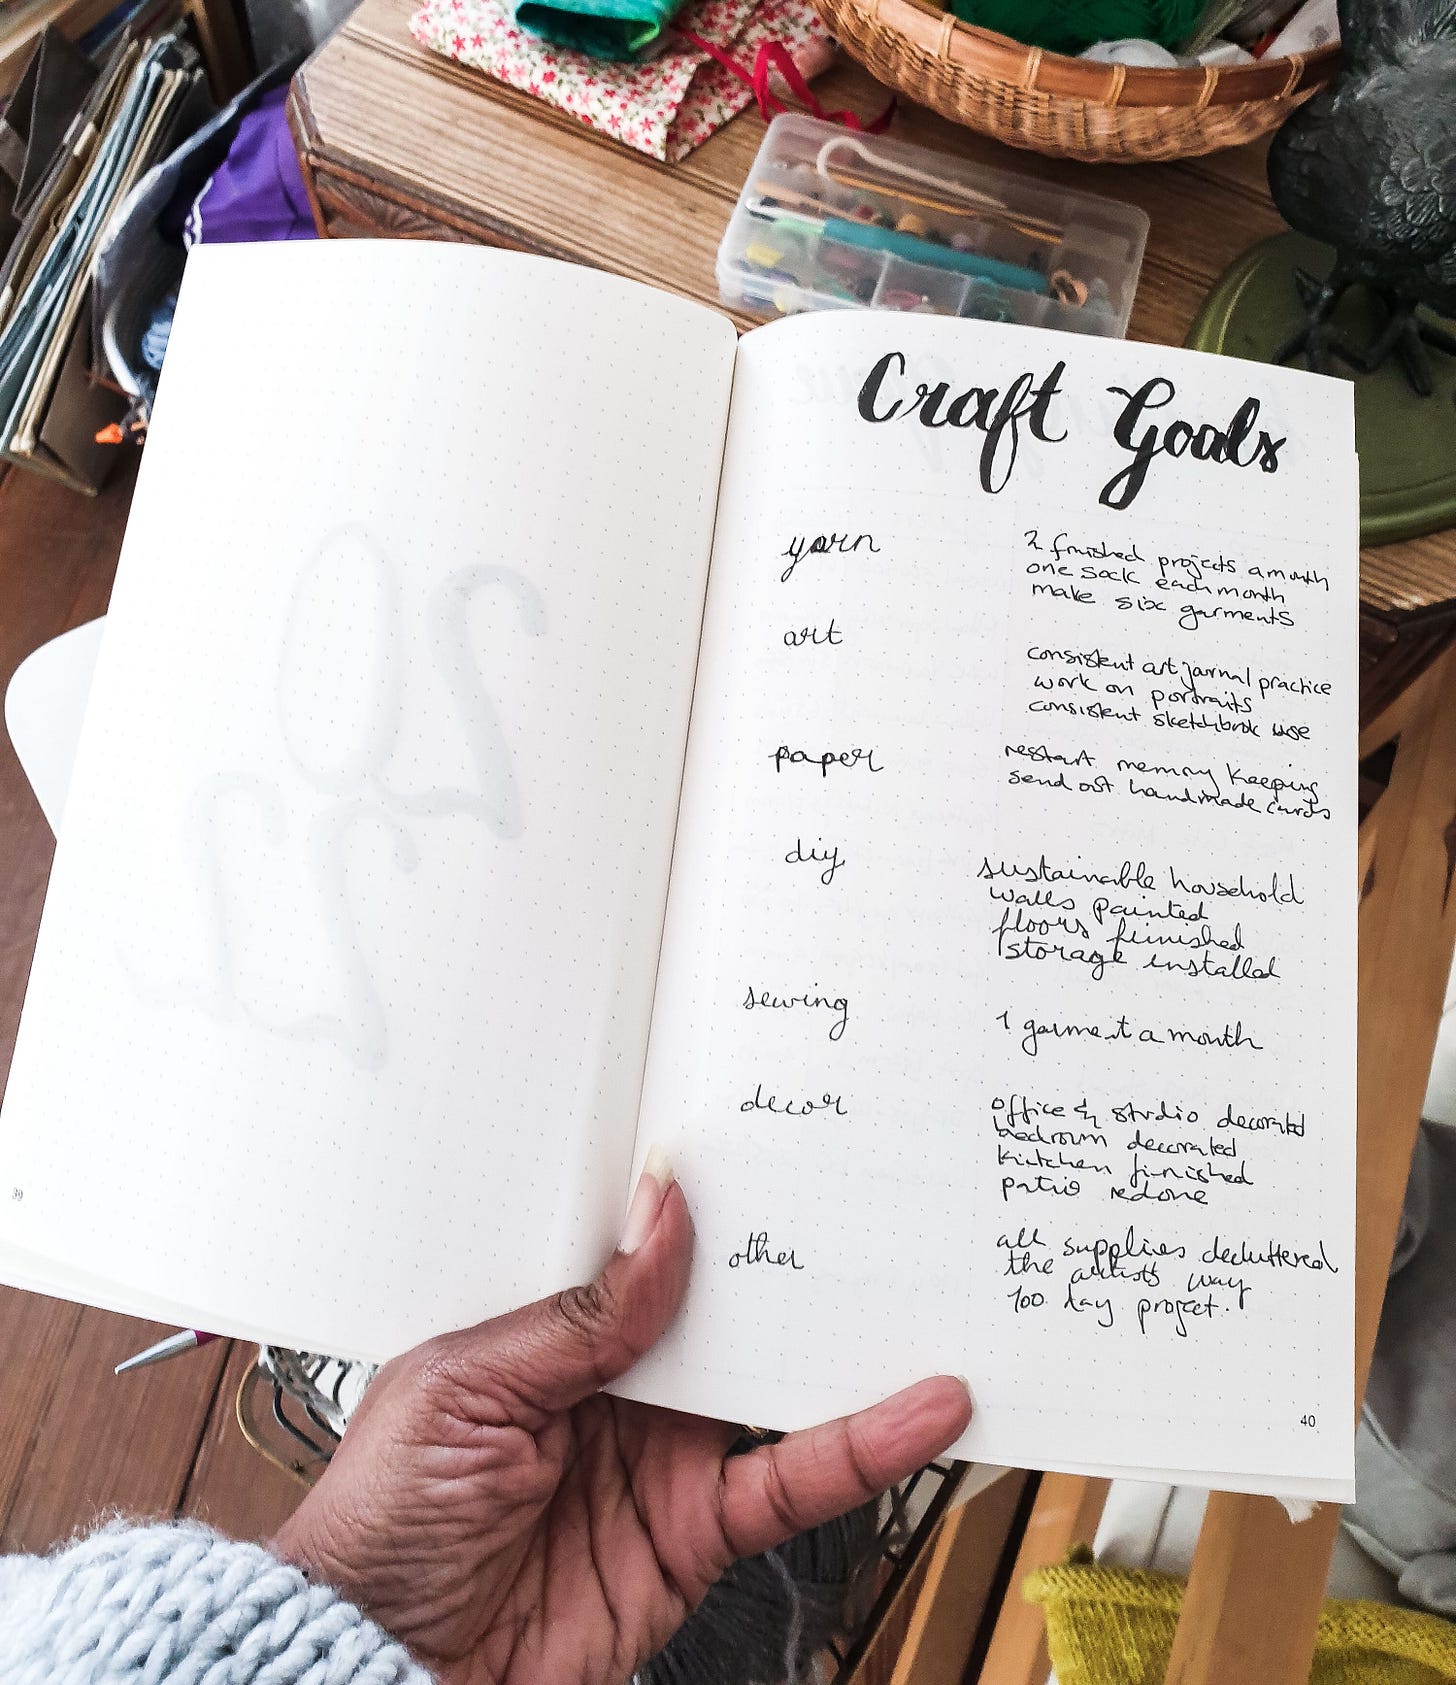 Craft Goals
yarn
2 finished projects a month
one sock each month
make six garments
art
consistent art jornal practice
work on portraits
consistent sketchbook use
paper
restart memory keeping
send out handmade cards
diy
sustainable household
walls painted
floors finished
storage installed
sewing
1 garment a month
decor
office & studio decorated
bedroom decorated
kitchen finished
patio redone
other
all supplies decluttered
the artists way
100 day project.
39
40